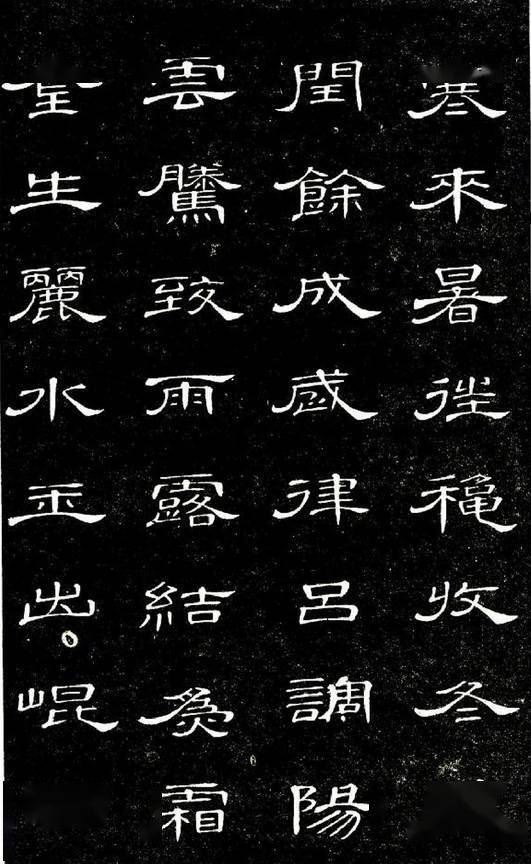 寒來暑徃穐收冬
閏餘成歲律呂調陽
雲騰致雨露結爲霜
金生麗水玉出崐